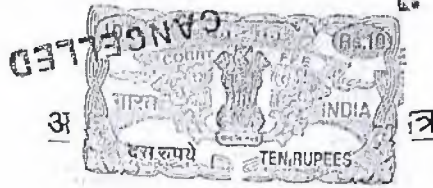 CANCELLED
COURT FEE
Rs.10
भारत INDIA
अ
दस रुपये TEN RUPEES